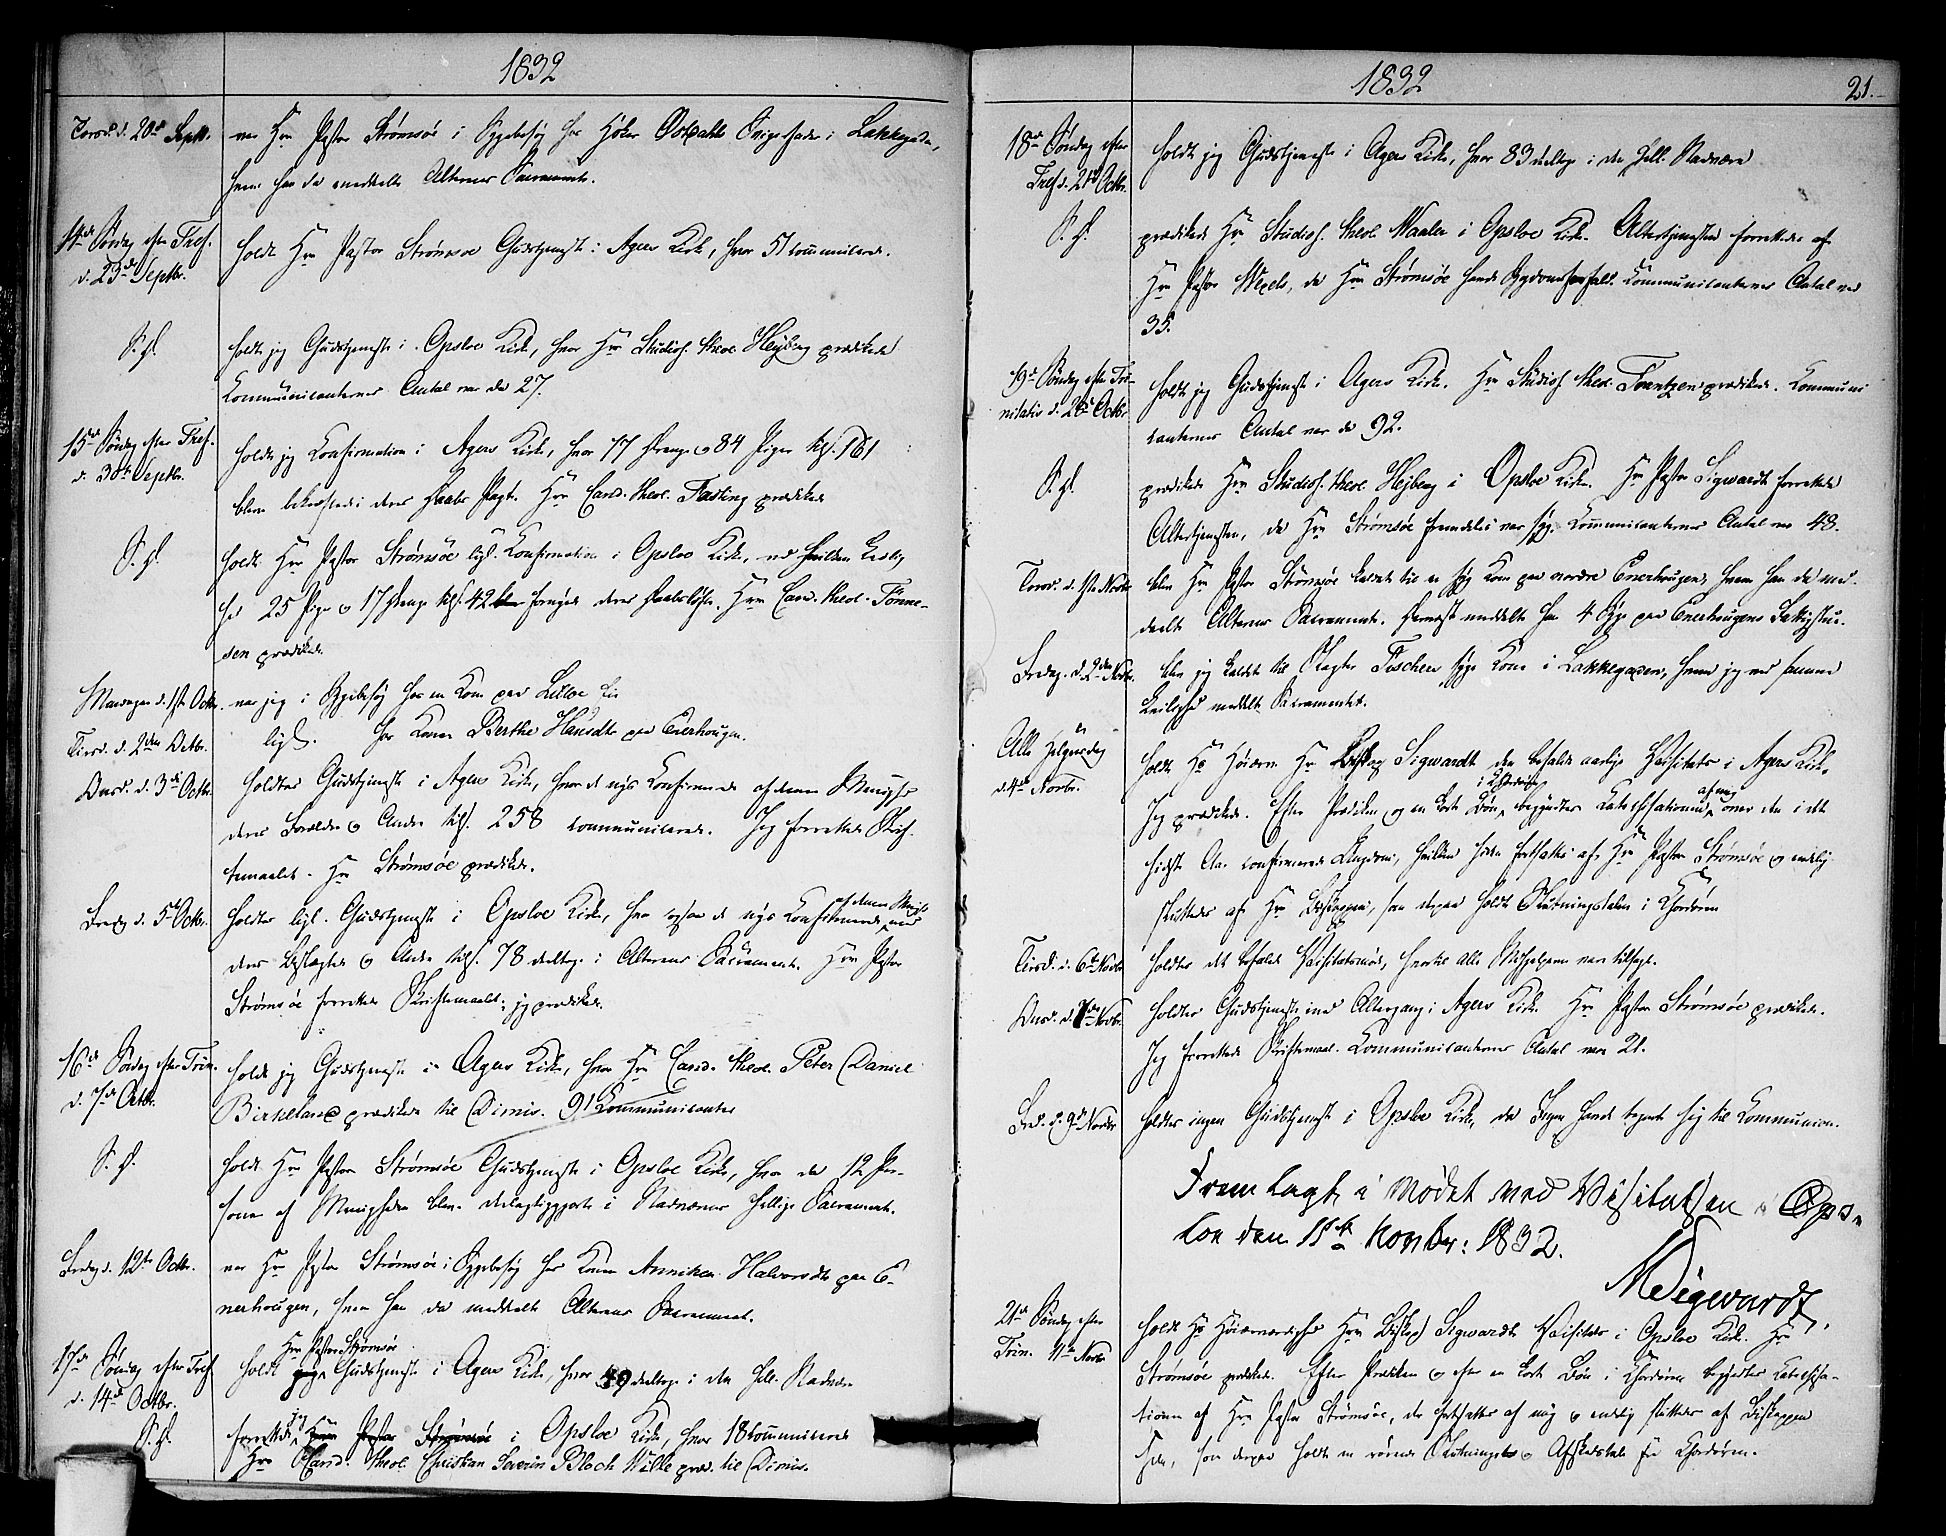 1832
Torsd. d. 20de Septr. var Hr. Pastor Strømsøe i Sygebesøg hos Høker Svigerfader i Lakkegaden,
hvem han da meddeelte Alterens Sacramente.
14de Søndag efter Tref. holdt Hr. Pastor Strømsøe Gudstjeneste i Agers Kirke, hvor 51 kommunicerede.
d. 23de Septbr.
S. D. holdt jeg Gudstjeneste i Opsloe Kirke, hvor Hr. Studios. theol. Heyberg prædikede
Kommunicanternes Antal var da 27.
15de Søndag efter Tref. holdt jeg Confirmation i Agers Kirke, hvor 77 Drenge og 84 Piger tils. 161
d. 30te Septbr. bleve bekræftede i deres Daabs Pagt. Hr. Cand. theol. Fasting prædikede
S. D. holdt Hr. Pastor Strømsøe ligl. Confirmation i Opsloe Kirke, ved hvilken Leilig-
hed 25 Piger og 17 Drenge tils. 42 fornyede deres Daabsløfte. Hr. Cand. theol. Tønne-
sen prædikede
Mandagen d. 1ste Octbr. var jeg i Sygebesøg hos en Kone paa
Tirsd. d. 2den Octbr. ligl. hos Konen Berthe Hansdtr paa Enerhougen.
Onsd. d. 3die Octbr. holdtes Gudstjeneste i Agers Kirke, hvor de nys Confirmerede af denne Menighed
deres Forældre og Andre tils. 258 kommunicerede. Jeg forrettede Skrif-
temaalet. Hr. Strømsøe prædikede.
Fredag d. 5te Octbr. holdtes ligl. Gudstjeneste i Opsloe Kirke, hvor ogsaa de nys Confirmerede af denne Menigh. med
deres Beslægtede og Andre tils. 78 deeltoge i Alterens Sacramente. Hr. Pastor
Strømsøe forrettede Skriftemaalet, jeg prædikede.
16de Søndag efter Trin. holdt jeg Gudstjeneste i Agers Kirke, hvor Hr. Cand. theol. Peter Daniel
d. 7de Octbr. Birkeland prædikede til Dimis. 91 Kommunicanter
S. D. holdt Hr. Pastor Strømsøe Gudstjeneste i Opsloe Kirke, hvor da 12 Per-
soner af Menigheden bleve delagtiggjorte i Nadverens hellige Sacramente.
Fredag d. 12te Octbr. var Hr. Pastor Strømsøe i Sygebesøg hos Konen Anniken Halvorsdtr paa E-
nerhougen, hvem han da meddeelte Alterens Sacramente.
17de Søndag efter Tref. holdt Hr. Pastor Strømsøe Gudstjeneste i Agers Kirke, hvor 49 deeltoge i den hell. Nadvere
d. 14de Octbr.
S. D. forrettede jeg Hr. Pastor Strømsøe i Opsloe Kirke, hvor 18 kommunicerede
Hr. Cand. theol. Christian Severin Bloch Wille præd. til Dimis.
1832
21.
18de Søndag efter holdt jeg Gudstjeneste i Agers Kirke, hvor 83 deeltoge i den hell. Nadvere
Tref. d. 21de Octbr.
S. D. prædikede Hr. Studios. theol. Maaler i Opsloe Kirke. Altertjenesten forrettedes af
Hr. Pastor Wexels, da Hr. Strømsøe havde Sygdomsforfald. Communicanternes Antal var
35.
19de Søndag efter Tri- holdt jeg Gudstjeneste i Agers Kirke. Hr. Studios. theol. prædikede. Communi-
nitatis d. 28de Octbr. canternes Antal var da 92.
S. D. prædikede Hr. Studios. theol. Hejberg i Opsloe Kirke. Hr. Pastor Sigwardt forrettede
Altertjenesten, da Hr. Strømsøe fremdeles var syg. Kommunicanternes Antal var 48.
Torsd. d. 1ste Novbr. blev Hr. Pastor Strømsøe kaldet til en syg Kone paa nordre Enerhougen, hvem han da med-
deelte Alterens Sacramente. Dernæst meddelte han 4 Syge paa Enerhougens Fattigstue.
Fredag. d. 2den Novbr. blev jeg kaldet til Slagter Fischers syge Kone i Lakkegaden, hvem jeg ved samme
Leilighed meddelte Sacramentet.
Alle Helgensdag holdt Hs. Høiærv. Hr. Biskop Sigwardt den befalede aarlige Visitats i Agers Kirke
d. 4de Novbr. Jeg prædikede. Efter Prædiken og en kort Bøn i Chordøren begyndtes Katechisationen af mig over den i det
sidste Aar confirmerede Ungdom, hvilken siden fortsattes af Hr. Pastor Strømsøe og endelig
sluttedes af Hr. Biskoppen, som derpaa holdt Slutningstalen i Chordøren
Tirsd. d. 6te Novbr. holdtes det befalede Visitatsmøde, hvortil alle Medhjelperne vare tilsagte.
Onsd. d. 7de Novbr. holdtes Gudstjeneste med Altergang i Agers Kirke. Hr. Pastor Strømsøe prædikede.
Jeg forrettede Skriftemaal. Communicanternes Antal var 21.
Fred. d. 9de Novbr. holdtes ingen Gudstjeneste i Opsloe Kirke, da Ingen havde tegnet sig til Communion.
Fremlagt i Mødet ved Visitatsen i Ops-
loe den 11te Novbr: 1832.
MSigwardt.
21de Søndag efter holdt Hs. Høiærværdighed Hr. Biskop Sigwardt Visitats i Opsloe Kirke. Hr.
Trin. 11te Novbr. Strømsøe prædikede. Efter Prædiken og efter en kort Bøn i Chordøren begyndtes Katechisa-
tionen af Hr. Pastor Strømsøe, der fortsattes af mig og endelig sluttedes af Biskoppen
som derpaa holdt en rørende Slutnings- og Afskedstale fra Chordøren.